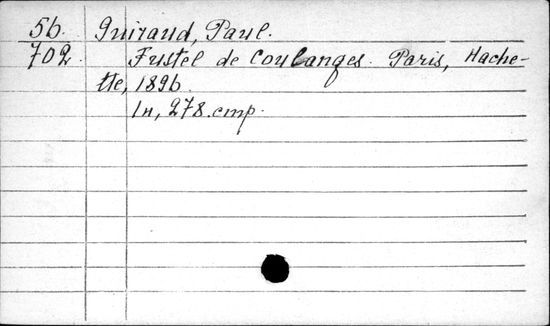 56. Guiraud, Paul.
702. Fustel de Coulanges. Paris, Hache-
tte, 1896.
1н, 278. стр.